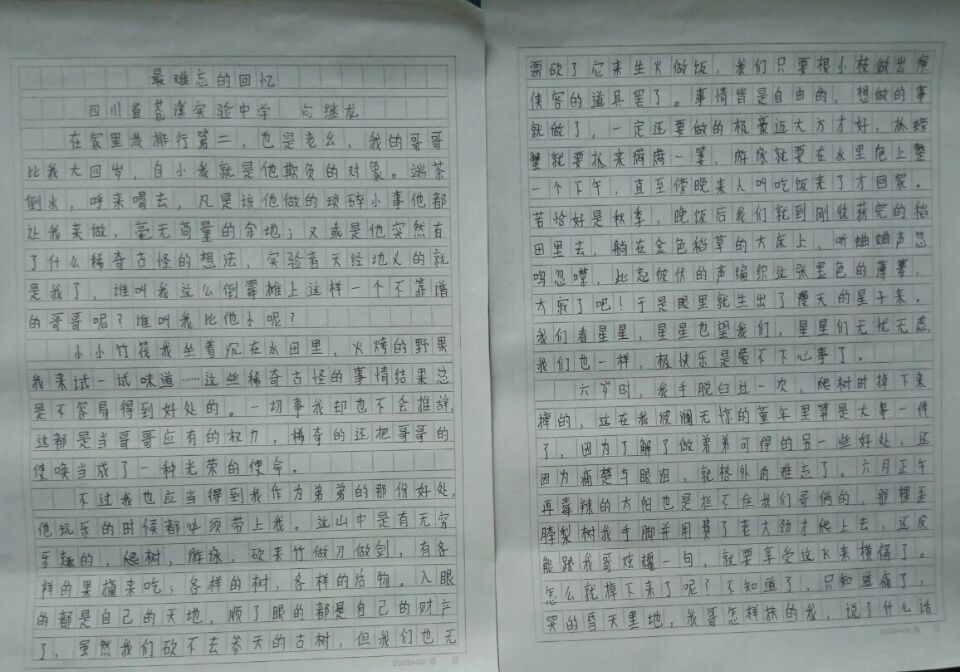 最难忘的回忆
四川省苍溪实验中学 句继龙
在家里我排行第二，也是老幺，我的哥哥
比我大四岁，自小我就是他欺负的对象。端茶
倒水，呼来喝去，凡是该他做的琐碎小事他都
让我来做，毫无商量的余地；又或是他突然有
了什么稀奇古怪的想法，实验者天经地义的就
是我了，谁叫我这么倒霉摊上这样一个不靠谱
的哥哥呢？谁叫我比他小呢？
小小竹筏我坐着沉在水田里，火烤的野果
我来试一试味道……这些稀奇古怪的事情结果总
是不容易得到好处的。一切事我却也不会推辞，
这都是当哥哥应有的权力，稀奇的还把哥哥的
使唤当成了一种光荣的使命。
不过我也应当得到我作为弟弟的那份好处，
他玩乐的时候都必须带上我。这山中是有无穷
乐趣的，爬树，游泳，砍来竹做刀做剑，有各
样的果摘来吃；各样的树，各样的活物。入眼
的都是自己的天地，顺了眼的都是自己的财产
了，虽然我们砍不去参天的古树，但我们也无
需砍了它来生火做饭，我们只要根小枝做出
侠客的道具罢了。事情皆是自由的，想做的事
就做了，一定还要做的极豪迈大方才好，抓螃
蟹就要抓来满满一篓，游泳就要在水里泡上整
一个下午，直至傍晚来人叫吃饭来了才回家。
若恰好是秋季，晚饭后我们就到刚收获完的稻
田里去，躺在金色稻草的大床上，听蛐蛐声忽
鸣忽噤，此起彼伏的声编织这张黑色的薄薯，
太寂了吧！于是眼里就生出了漫天的星子来。
我们看星星，星星也望我们，星星们无忧无虑，
我们也一样，极快乐是爱不下心事了。
六岁时，我手脱臼过一次，爬树时掉下来
摔的，这在我波澜无惊的童年里算是大事一件
了，因为了解了做弟弟可得的另一些好处，还
因为痛楚与眼泪，就格外的难忘了。六月正午
再毒辣的太阳也是拦不住我们哥俩的，那棵歪
脖梨树我手脚并用费了老大劲才爬上去，还没
能跟我哥炫耀一句，就要享受这飞来横祸了。
怎么就掉下来了呢？不知道了，只知道痛了，
哭的昏天黑地，我哥怎样抹的我，说了什么话